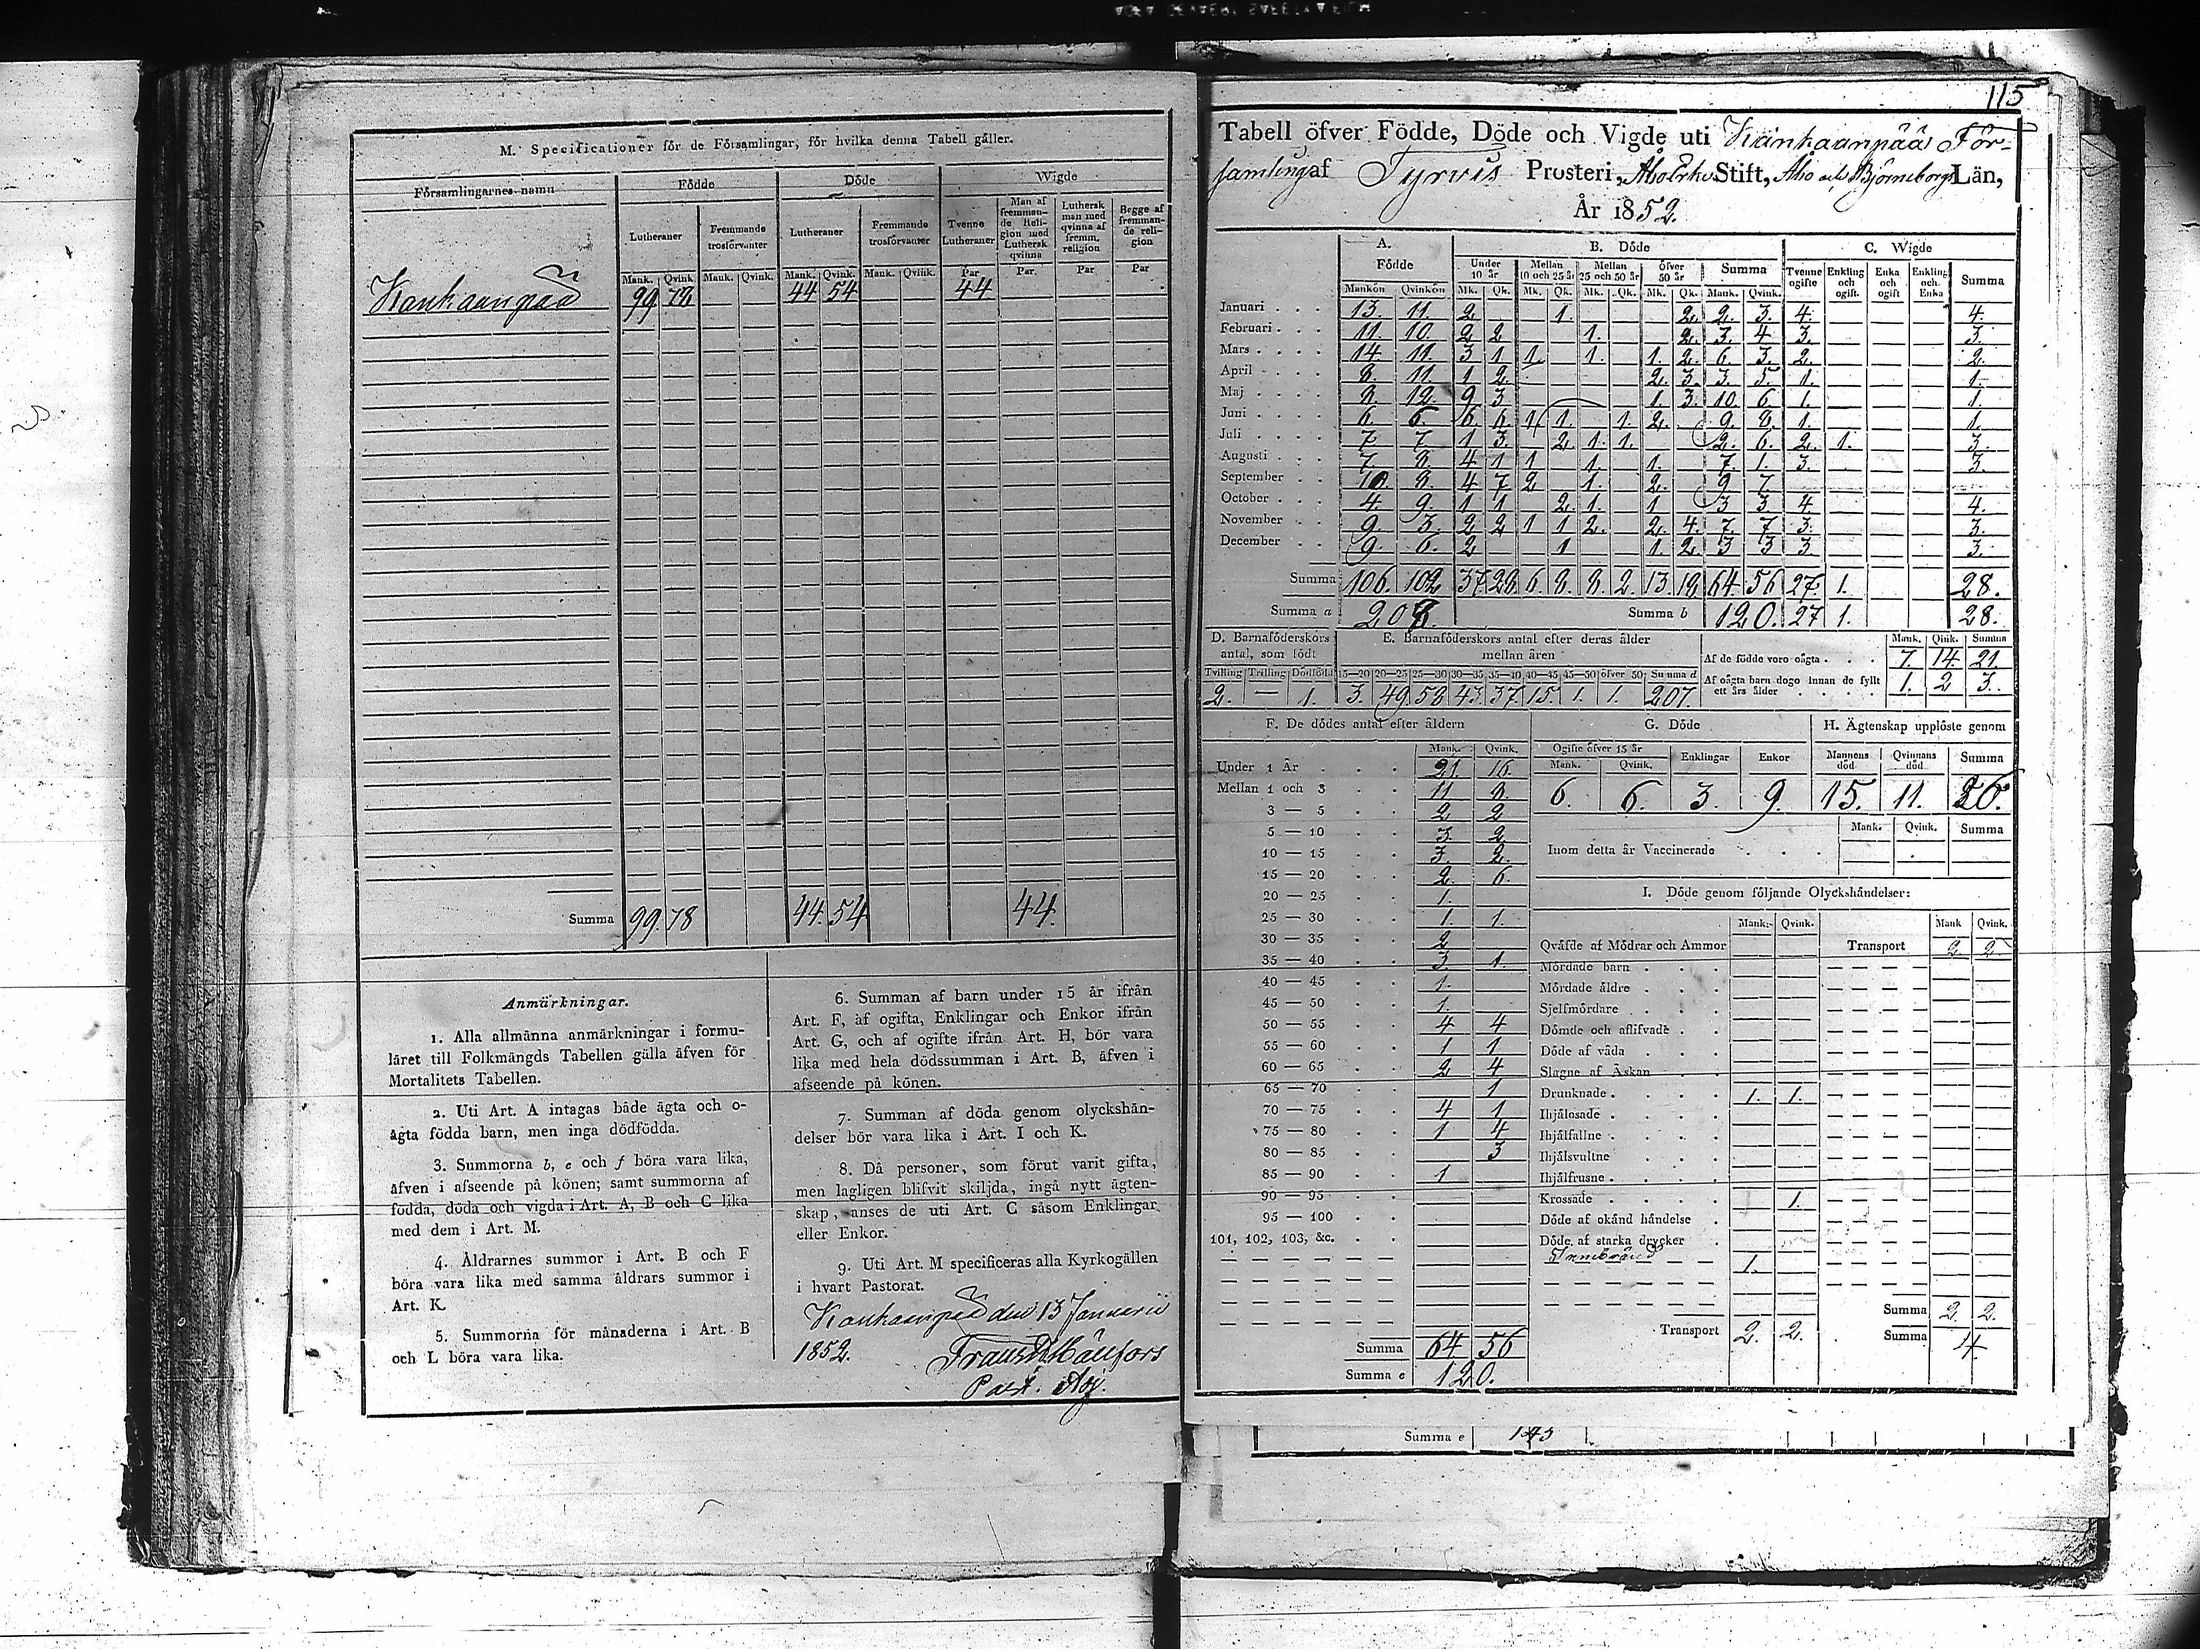 M. Specificationer för de Församlingar, för hvilka denna Tabell gäller.
Församlingarnes namn Födde Döde Wigde
Lutheraner Fremmande trosförvanter Lutheraner Fremmande trosförvanter Tvenne Lutheraner Man af fremmande Religion med Luthersk qvinna Luthersk man med qvinna af fremm. religion Begge af fremmande religion
Mank. Qvink. Mank. Qvink. Mank. Qvink. Mank. Qvink. Par Par. Par Par
Kankaanpää 99 78 44 54 44
Summa 99. 78 44. 54 44.
Anmärkningar.
1. Alla allmänna anmärkningar i formu-
läret till Folkmängds Tabellen gälla äfven för
Mortalitets Tabellen.
2. Uti Art. A intagas både ägta och o-
ägta födda barn, men inga dödfödda.
3. Summorna b, e och f böra vara lika,
äfven i afseende på könen; samt summorna af
födda, döda och vigda i Art. A, B och C lika
med dem i Art. M.
4. Åldrarnes summor i Art. B och F
böra vara lika med samma åldrars summor i
Art. K.
5. Summorna för månaderna i Art. B
och L böra vara lika.
6. Summan af barn under 15 år ifrån
Art. F, af ogifta, Enklingar och Enkor ifrån
Art. G, och af ogifte ifrån Art. H, bör vara
lika med hela dödssumman i Art. B, äfven i
afseende på könen.
7. Summan af döda genom olyckshän-
delser bör vara lika i Art. I och K.
8. Då personer, som förut varit gifta,
men lagligen blifvit skiljda, ingå nytt ägten-
skap, anses de uti Art. C såsom Enklingar
eller Enkor.
9. Uti Art. M specificeras alla Kyrkogällen
i hvart Pastorat.
Kankaanpää den 13 Januarii
1852.
Past. Adj.
115
Tabell öfver Födde, Döde och Vigde uti Kankaanpää För-
samling af Tyrvis Prosteri, Åbo Erke Stift, Åbo och Björneborgs Län,
År 1852.
A. Födde B. Döde C. Wigde
Under 10 år Mellan 10 och 25 år Mellan 25 och 50 år Öfver 50 år Summa Tvenne ogifte Enkling och ogift. Enka och ogift Enkling och Enka Summa
Mankön Qvinkön Mk. Qk. Mk. Qk. Mk. Qk. Mk. Qk. Mank. Qvink.
Januari 13. 11. 2. 1. 2. 2. 3. 4. 4.
Februari 11. 10. 2 2 1. 2. 3. 4 3. 3.
Mars 14. 11. 3 1 1. 1. 1. 2. 6. 3. 2. 2.
April 8. 11. 1 2. 2. 3. 3. 5. 1. 1.
Maj 8. 12. 9 3 1. 3. 10. 6. 1. 1.
Juni 6. 6. 6. 6 1 1. 1. 2. 9. 8. 1. 1.
Juli 7. 7. 1 3. 2. 1. 1. 2. 6. 2. 1. 3.
Augusti 7. 8. 4 1 1 1. 1. 7. 1. 3. 3.
September 10. 8. 4 7 2 1. 2. 9 7
October 4. 9. 1 1 2. 1. 1 3 3 4. 4.
November 9. 3. 2 2 1 1 2. 2. 4. 7. 7 3. 3.
December 9. 6. 2 1 1. 2. 3 3 3. 3.
Summa 106. 102. 37. 28. 6 8. 8. 2. 13. 18 64. 56 27. 1. 28.
Summa a 208. Summa b 120. 27 1. 28.
D. Barnaföderskors antal, som födt
Tvilling Trilling Dödfödt
2. — 1.
E. Barnaföderskors antal efter deras ålder mellan åren
15—20 20—25 25—30 30—35 35—40 40—45 45—50 öfver 50 Summa d
3. 49. 58 43. 37. 15. 1. 1. 207.
Mank. Qvink. Summa
Af de födde voro oägta 7. 14. 21.
Af oägta barn dogo innan de fyllt ett års ålder 1. 2 3.
F. De dödes antal efter åldern
Mank. Qvink.
Under 1 År 21. 16.
Mellan 1 och 3 11 8
3 — 5 2 2
5 — 10 3 2
10 — 15 3. 2.
15 — 20 2. 6.
20 — 25 1.
25 — 30 1 1.
30 — 35 2
35 — 40 3. 1.
40 — 45 1.
45 — 50 1.
50 — 55 4 4
55 — 60 1 1
60 — 65 2 4
65 — 70 1
70 — 75 4 1
75 — 80 1 4
80 — 85 3
85 — 90 1
90 — 95
95 — 100
101, 102, 103, &c.
Summa 64 56
Summa e 120.
G. Döde
Ogifte öfver 15 år Enklingar Enkor
Mank. Qvink.
6. 6. 3. 9.
H. Ägtenskap upplöste genom
Mannens död Qvinnans död Summa
15. 11. 26.
Mank. Qvink. Summa
Inom detta år Vaccinerade
I. Döde genom följande Olyckshändelser:
Mank. Qvink. Mank Qvink.
Qväfde af Mödrar och Ammor Transport 2 2
Mördade barn
Mördade äldre
Sjelfmördare
Dömde och aflifvade
Döde af våda
Slagne af Åskan
Drunknade 1. 1.
Ihjälosade
Ihjälfallne
Ihjälsvultne
Ihjälfrusne
Krossade 1.
Döde af okänd händelse
Döde af starka drycker
Innebränd 1.
Transport 2. 2.
Summa 2. 2.
Summa 4.
Summa e